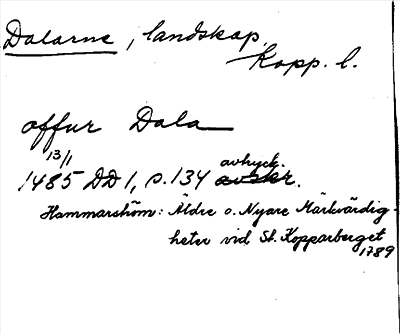 Dalarne, landskap,
Kopp. l.
offur Dala
13/1
1485 DD1, s. 134 avskr. avtryck.
Hammarström: Äldre o. Nyare Märkvärdig-
heter vid St. Kopparberget
1789